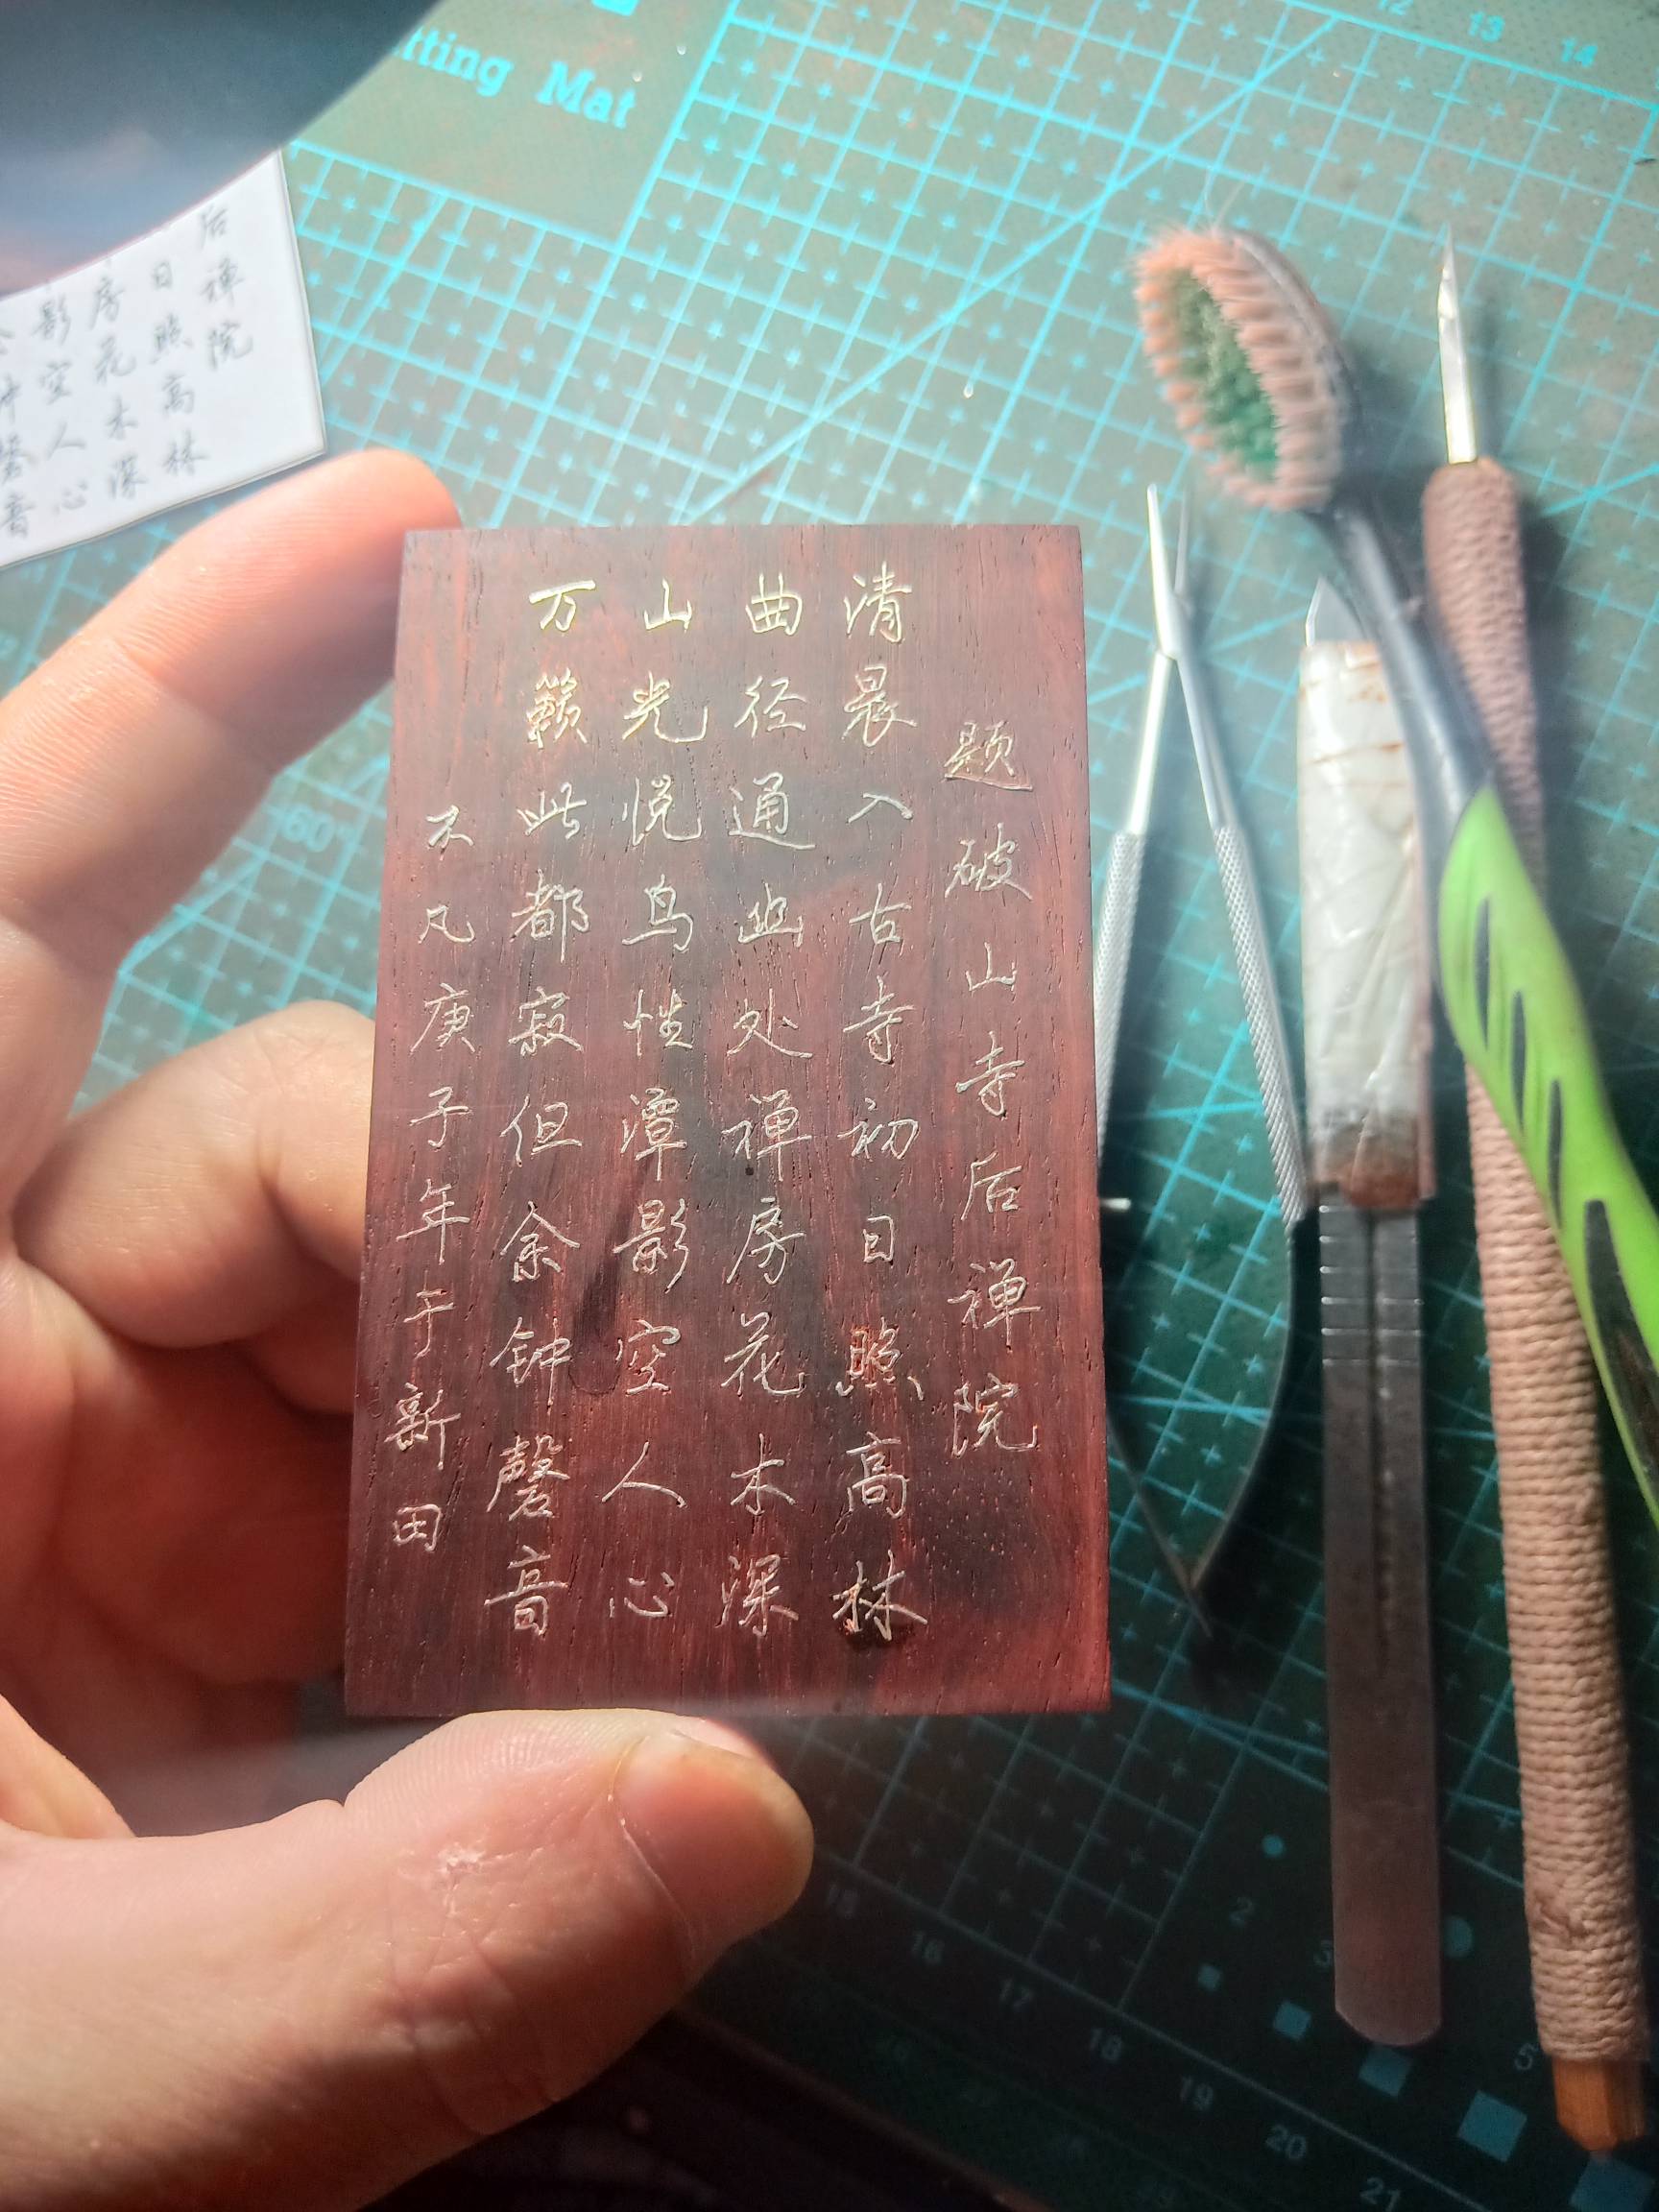 题破山寺后禅院
清晨入古寺初日照高林
曲径通幽处禅房花木深
山光悦鸟性潭影空人心
万籁此都寂但余钟磬音
不凡庚子年于新田
后禅院
日照高林
房花木深
影空人心
磬音
tting Mat
12 13 14
60°
16
17
18
19
20
21
2
3
5